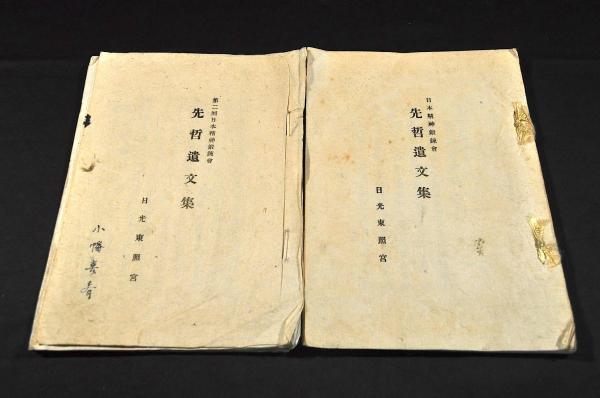 日本精神鍛錬會
先哲遺文集
日光東照宮
第二回日本精神鍛錬會
先哲遺文集
日光東照宮
小幡